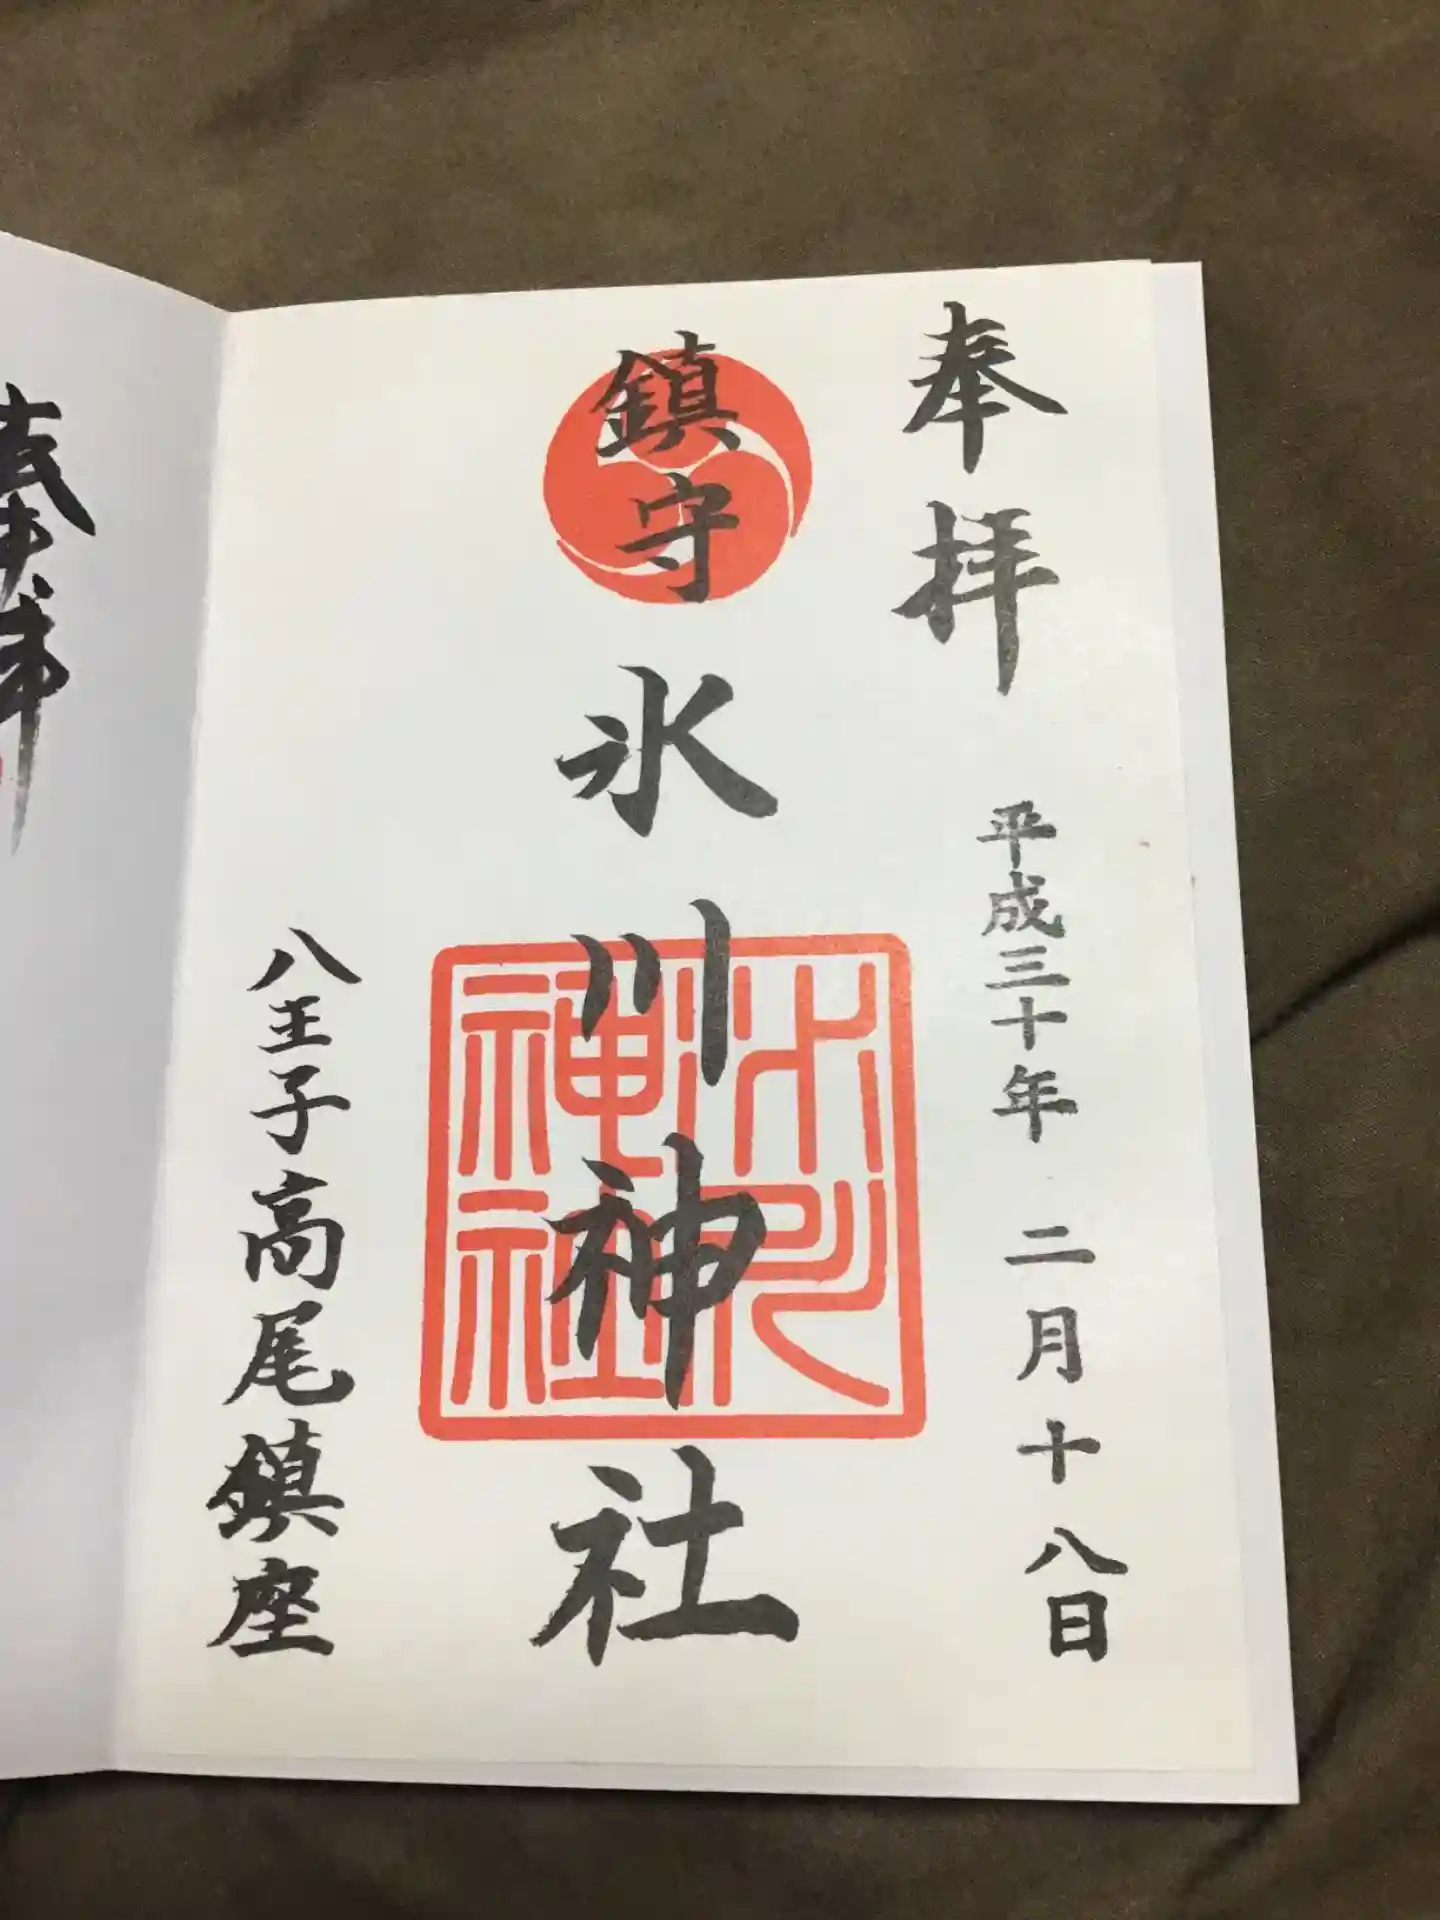 奉拝
平成三十年 二月十八日
鎮守
氷川神社
氷川
神社
八王子高尾鎮座
奉拝